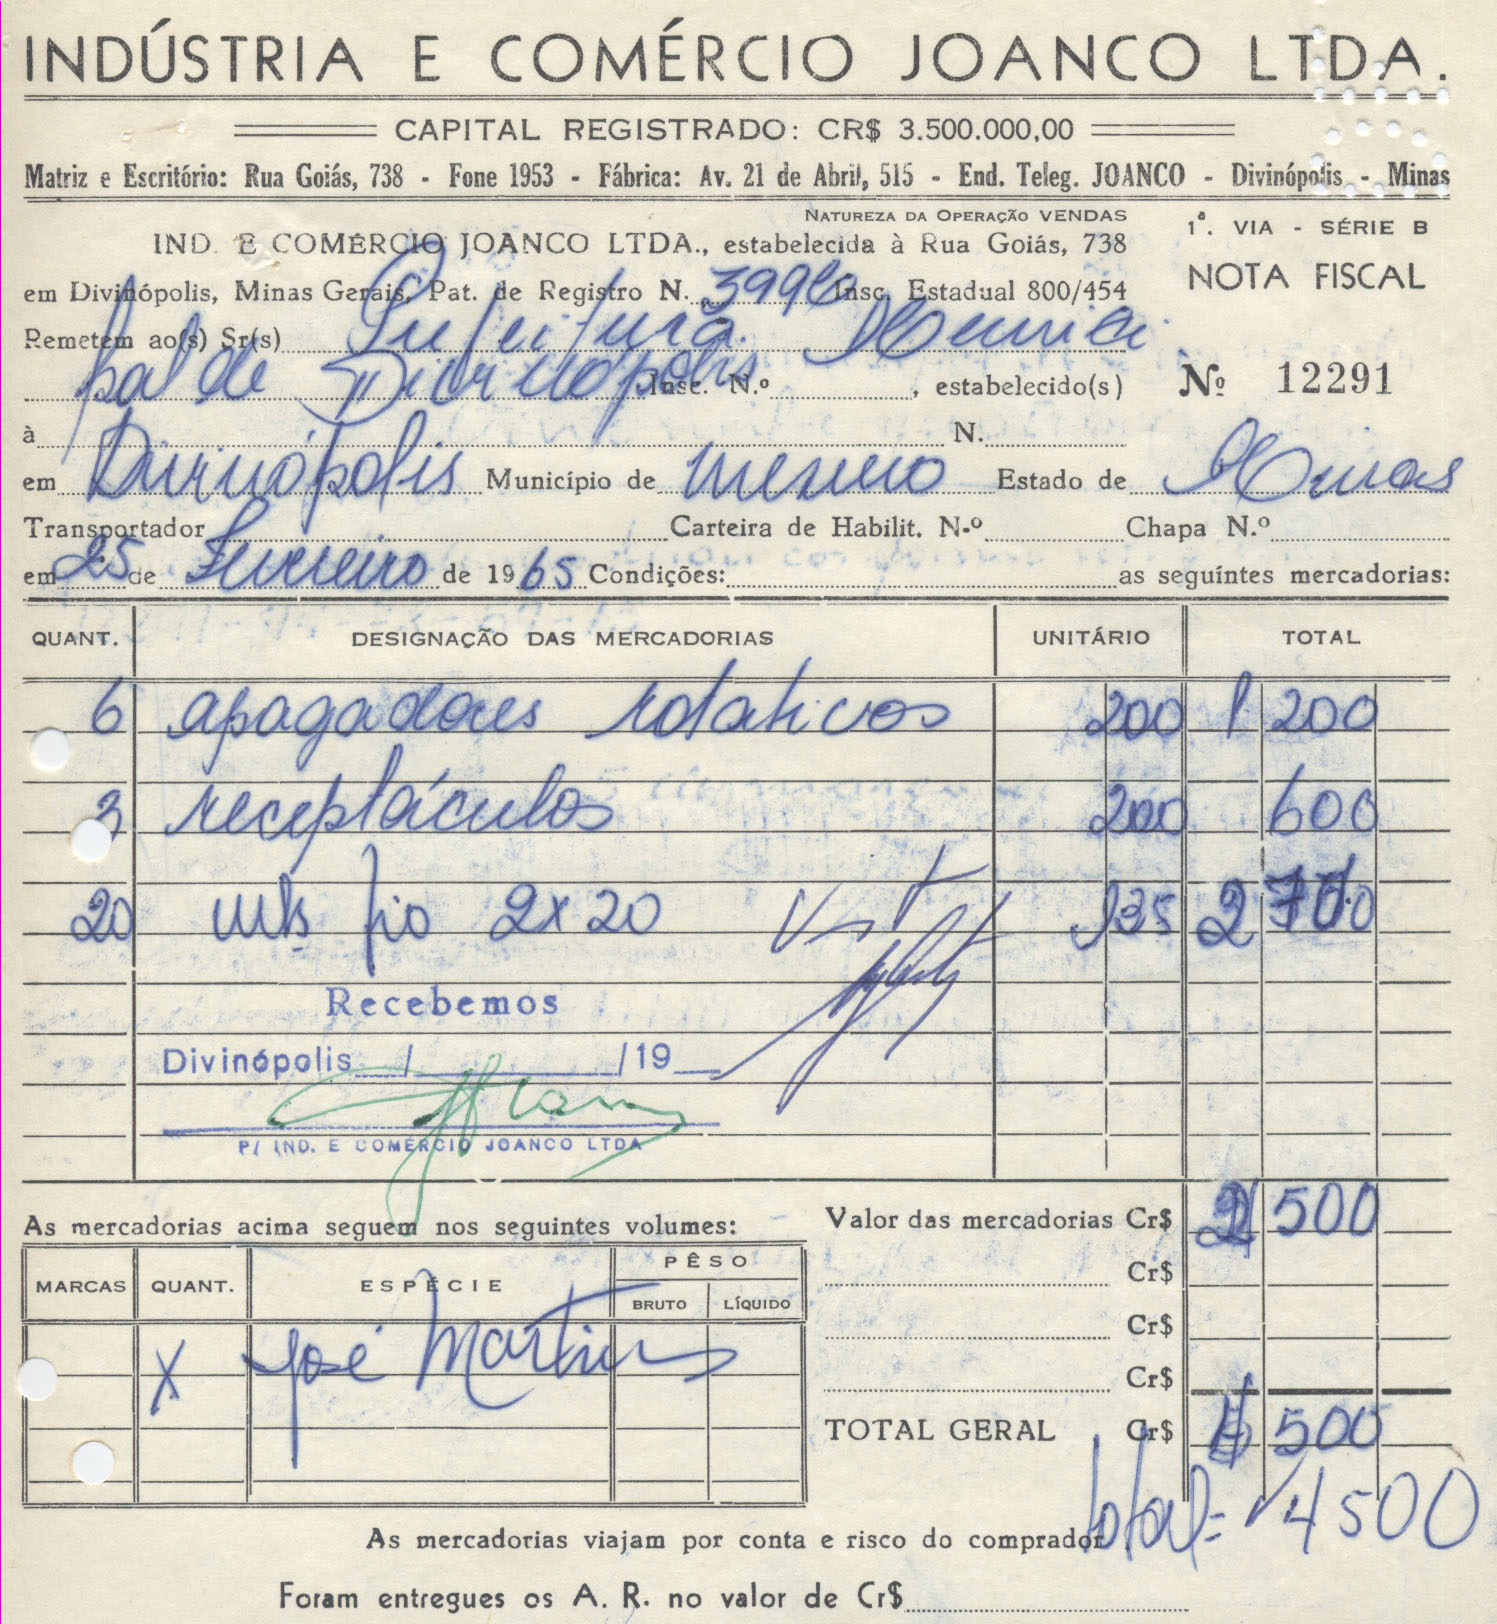 INDÚSTRIA E COMÉRCIO JOANCO LTDA.
CAPITAL REGISTRADO: CR$ 3.500.000,00
Matriz e Escritório: Rua Goiás, 738 - Fone 1953 - Fábrica: Av. 21 de Abril, 515 - End. Teleg. JOANCO - Divinópolis - Minas
NATUREZA DA OPERAÇÃO VENDAS
1ª. VIA - SÉRIE B
IND. E COMÉRCIO JOANCO LTDA., estabelecida à Rua Goiás, 738
em Divinópolis, Minas Gerais, Pat. de Registro N. Insc. Estadual 800/454
NOTA FISCAL
Remetem ao(s) Sr(s) Prefeitura Munici
pal de Divinópolis Insc. N.º , estabelecido(s)
Nº 12291
à N.
em Divinópolis Município de mesmo Estado de Minas
Transportador Carteira de Habilit. N.º Chapa N.º
em 25 de Fevereiro de 1965 Condições: as seguintes mercadorias:
QUANT. DESIGNAÇÃO DAS MERCADORIAS UNITÁRIO TOTAL
6 apagadores rotativos 200 1 200
3 receptáculos 200 600
20 mts fio 2x20 135 2 700
Recebemos
Divinópolis / /19
P/ IND. E COMÉRCIO JOANCO LTDA
As mercadorias acima seguem nos seguintes volumes:
Valor das mercadorias Cr$ 500
MARCAS QUANT. ESPÉCIE PÊSO
BRUTO LÍQUIDO
Cr$
Cr$
X José Martins
Cr$
TOTAL GERAL Cr$ 500
total= 4500
As mercadorias viajam por conta e risco do comprador
Foram entregues os A. R. no valor de Cr$